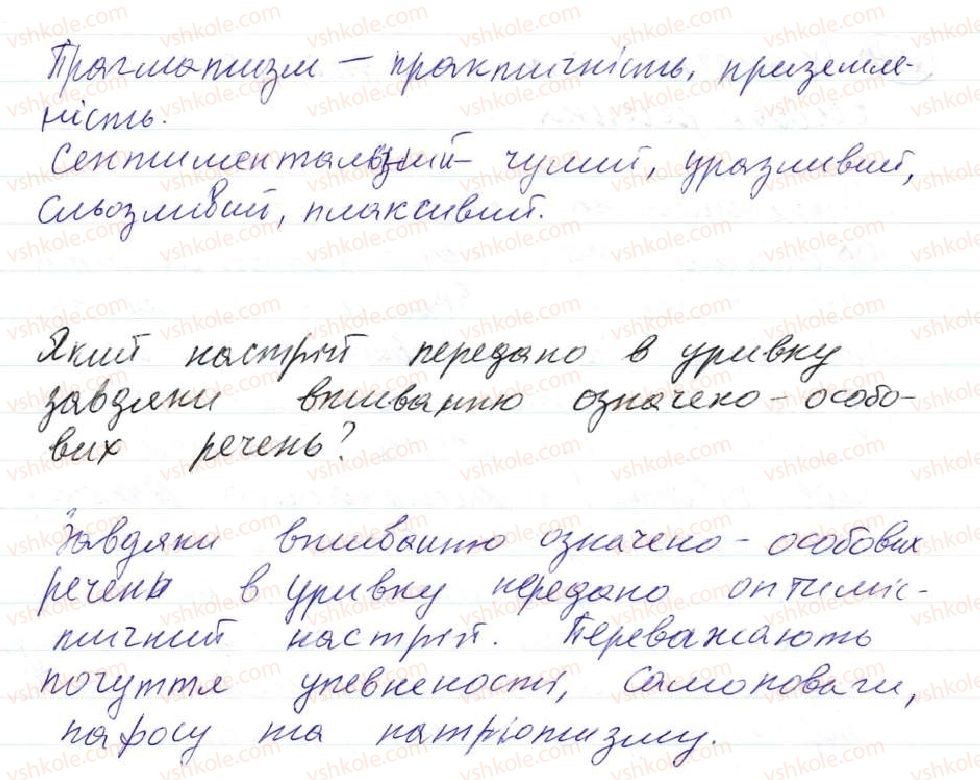 Прагматизм – практичність, приземле-
ність.
Сентиментальний – чулий, уразливий,
сльозливий, плаксивий.
Який настрій передано в уривку
завдяки вживанню означено-особо-
вих речень?
Завдяки вживанню означено-особових
речень в уривку передано оптиміс-
тичний настрій. Переважають
почуття упевнености, самоповаги,
пафосу та патріотизму.